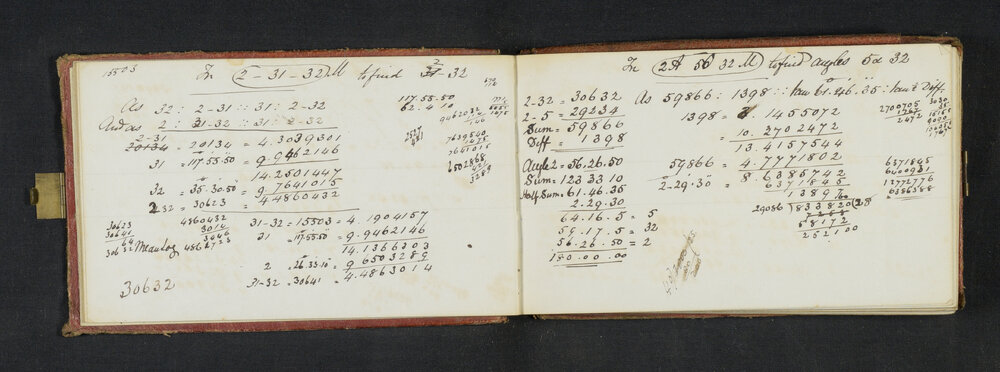 15503
In 2-31-32 M to find 31-32
As 32 : 2-31 :: 31 : 2-32
117.55.50
62.4.10
And as 2 : 31-32 :: 31 : 2-32
2-31
20134 = 20134 = 4.3039301
31 = 117.55.50 = 9.9462146
14.2501447
32 = 35.30.50 = 9.7641015
2-32 = 30623 = 4.4860432
9462032
7639540
1475
7641015
6502868
421
3289
30623
30641
64
4860432
3014
3046
Mean Log 4861723
31-32 = 15503 = 4.1904157
31 = 117.55.50 = 9.9462146
14.1366303
2 = 26.33.10 = 9.6503289
31-32 = 30641 = 4.4863014
30632
In 2A 56 32 M to find Angles 5 & 32
2-32 = 30632
2-5 = 29234
Sum = 59866
Diff = 1398
Angle 2 = 56.26.50
Sum = 123.33.10
Half Sum = 61.46.35
2.29.30
64.16.5 = 5
59.17.5 = 32
56.26.50 = 2
180.00.00
As 59866 : 1398 :: tan 61.46.35 : tan ½ Diff.
1398 = 3.1455072
= 10.2702472
13.4157544
59866 = 4.7771802
2.29.30 = 8.6385742
6371845
13897
29086 ) 833820 ( 28
58172
252100
2700705
1767
2472
6371845
6400931
12772776
6386388